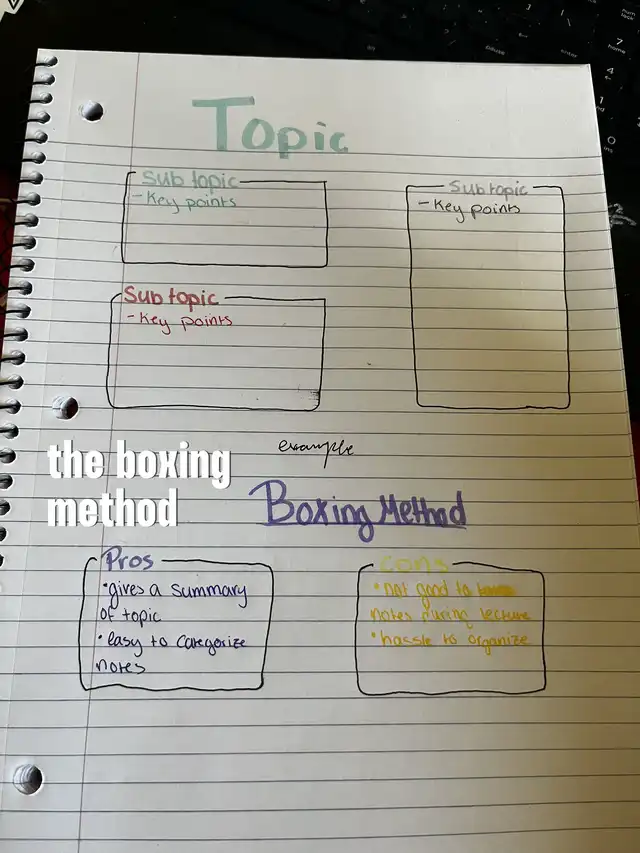 Topic
Sub topic
- Key points
Sub topic
- Key points
Sub topic
- Key points
example
the boxing
method
Boxing Method
Pros
•gives a summary
of topic
•easy to categorize
notes
cons
•not good to
notes during lecture
•hassle to organize